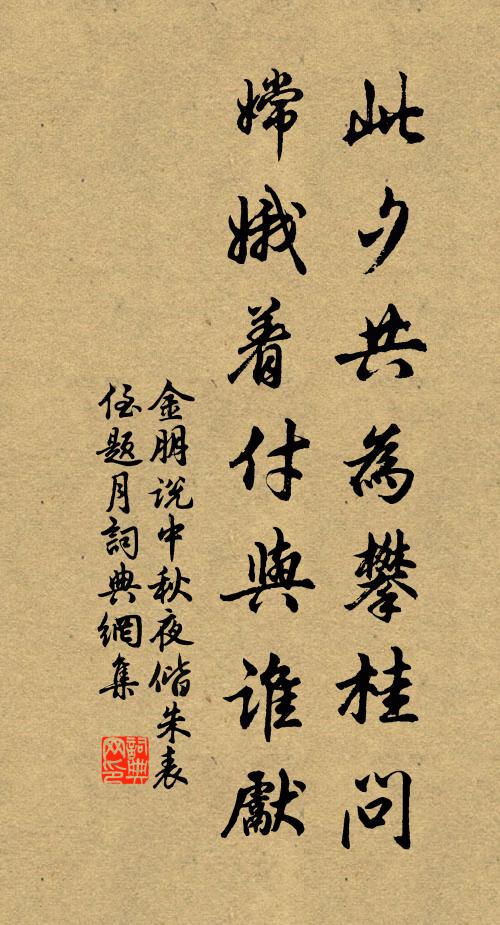 此夕共為攀桂問
嫦娥着付與誰獻
金朋說中秋夜偕朱表
侄題月詞典網集
詞典网印